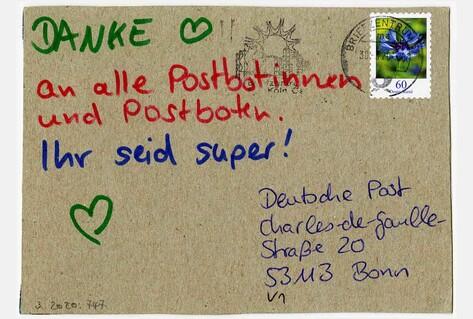 DANKE
an alle Postbotinnen
und Postboten.
Ihr seid super!
60
Deutsche Post
Charles-de-Gaulle-
Straße 20
53113 Bonn
3.2020.747